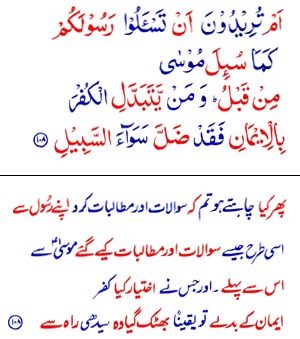 اَمْ تُرِيْدُوْنَ اَنْ تَسْـَٔلُوْا رَسُوْلَكُمْ
كَمَا سُىِٕلَ مُوْسٰى
مِنْ قَبْلُ ؕ وَ مَنْ يَّتَبَدَّلِ الْكُفْرَ
بِالْاِيْمَانِ فَقَدْ ضَلَّ سَوَآءَ السَّبِيْلِ ۝۱۰۸
پھر کیا چاہتے ہو تم کہ سوالات اور مطالبات کرو اپنے رسُول سے
اسی طرح جیسے سوالات اور مطالبات کیے گئے موسیٰؑ سے
اس سے پہلے ۔ اور جس نے اختیار کیا کفر
ایمان کے بدلے تو یقیناً بھٹک گیا وہ سیدھی راہ سے ۝۱۰۸